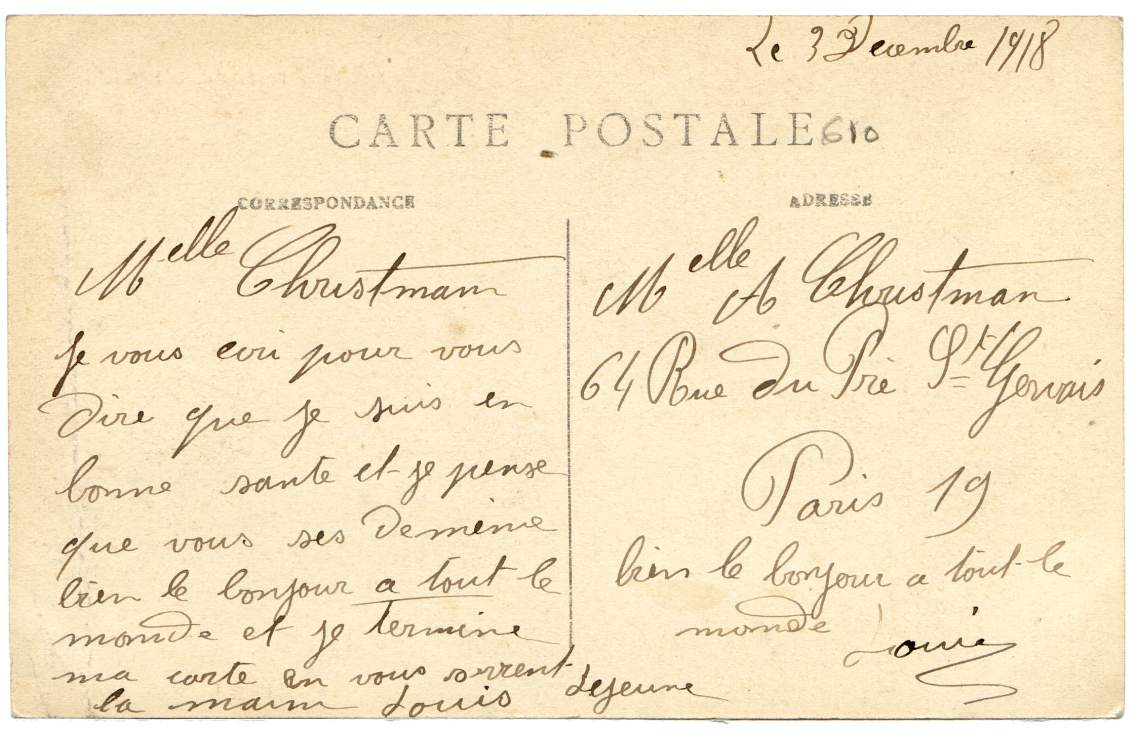 Le 3 Decembre 1918
CARTE POSTALE 610
CORRESPONDANCE
Melle Christmann
je vous ecri pour vous
dire que je suis en
bonne sante et je pense
que vous ses de meme
bien le bonjour a tout le
monde et je termine
ma carte en vous serrent
la main Louis Lejeune
ADRESSE
Melle A Christman
64 Rue du Pré St Gervais
Paris 19
bien le bonjour a tout le
monde Louis